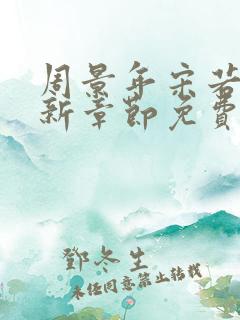 周景年宋若
新章節免費
鄧冬生
未经同意禁止转载